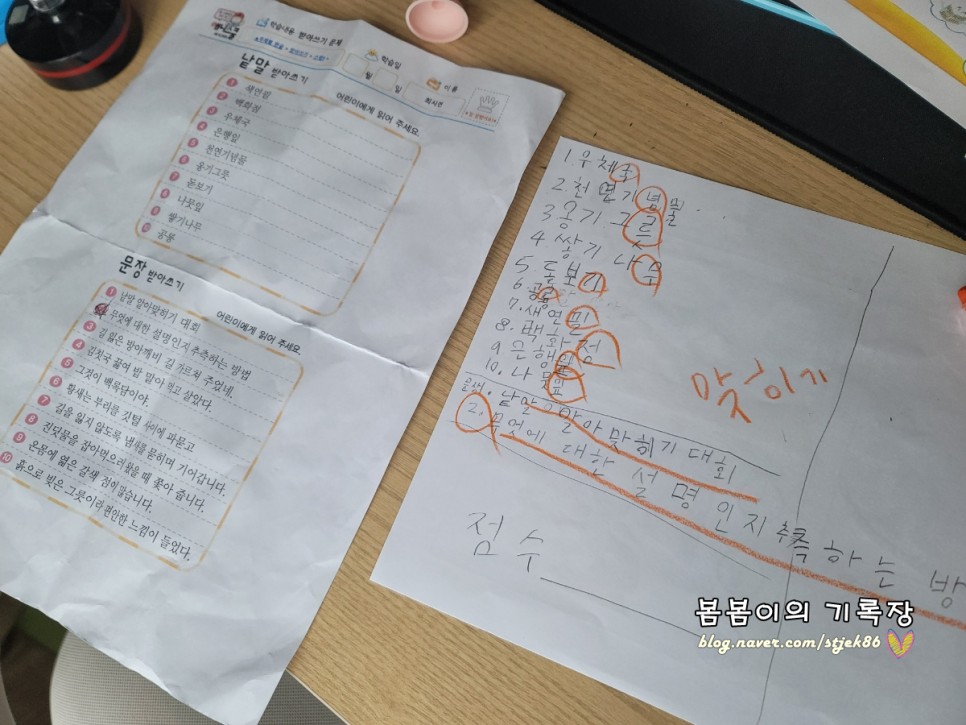 학습내용 받아쓰기 문제
학습일
월 일
이름
회사번
낱말 받아쓰기
어린이에게 읽어 주세요.
1 색연필
2 백화점
3 우체국
4 은행잎
5 천연기념물
6 옹기그릇
7 돋보기
8 나뭇잎
9 쌓기나무
10 공룡
문장 받아쓰기
어린이에게 읽어 주세요.
1 낱말 알아맞히기 대회
2 무엇에 대한 설명인지 추측하는 방법
3 길 잃은 방아깨비 길 가르쳐 주었네.
4 김칫국 끓여 밥 말아 먹고 살았다.
5 그것이 백록담이야.
6 황새는 부리를 깃털 사이에 파묻고
7 길을 잃지 않도록 냄새를 묻히며 기어갑니다.
8 진딧물을 잡아먹으러왔을 때 쫓아 줍니다.
9 온몸에 옅은 갈색 점이 많습니다.
10 흙으로 빚은 그릇이라 편안한 느낌이 들었다.
1. 우체국
2. 천연기념물
3 옹기그릇
4 쌓기나무
5. 돋보기
6. 공룡
7. 색연필
8. 백화점
9 은행잎
10. 나뭇잎
맞히기
낱말 알아맞히기 대회
2. 무엇에 대한 설명인지 추측하는 방
점수
봄봄이의 기록장
blog.naver.com/stjek86